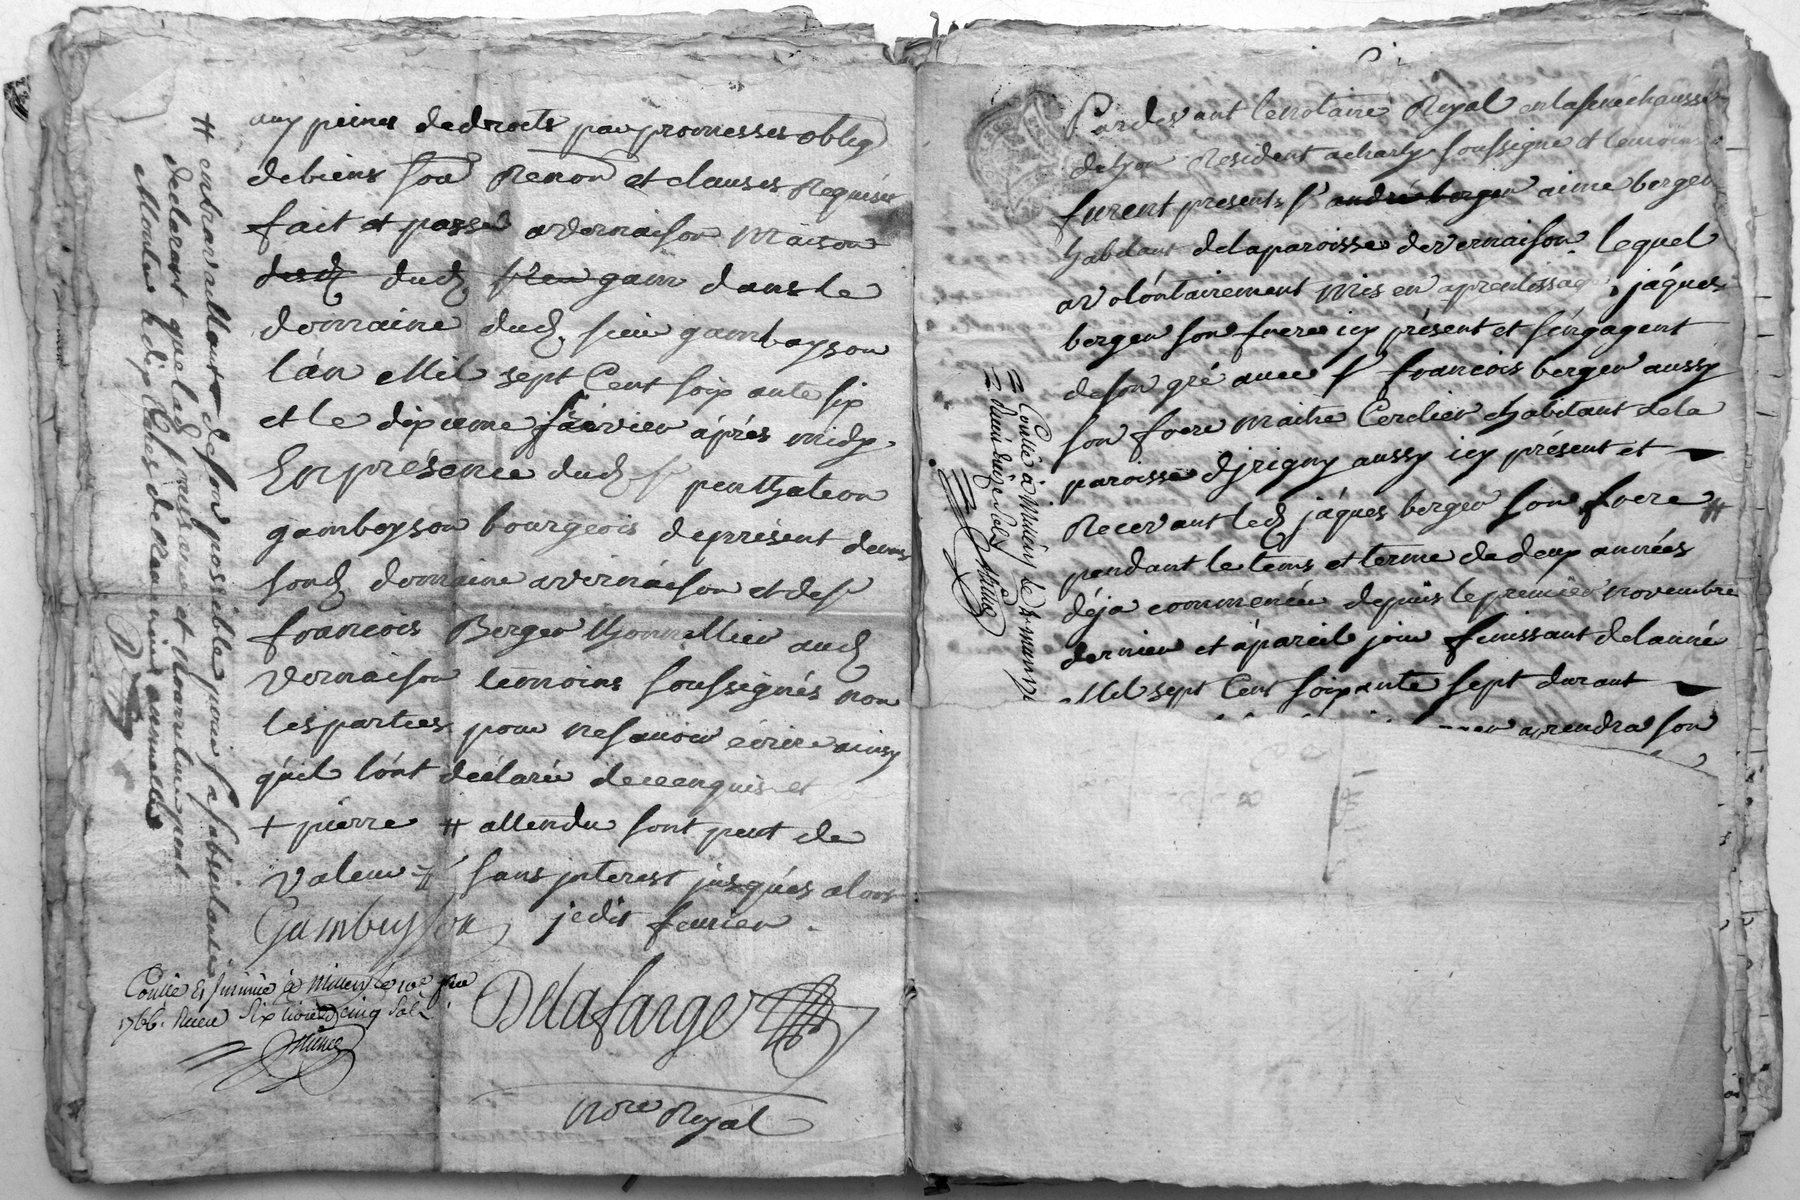 aux peines de droits par promesses oblig
de biens soum Renon et clauses Requises
fait et passé a vernaison Maison
dud dud sieur gam dans le
domaine dud. sieur gambayson
l'an Mil sept Cent soixante six
et le dixieme favrier après midy.
En présence dud sr penthaleon
gamboyson bourgeois de présent dans
sond domaine a vernaison et de sr
francois Berger thonnellier aud
vernaison temoins soussignés non
les parties pour ne savoir écrire ainsy
qu'il l'ont déclaré de ce enquis et
+ pierre # attendu sont peut de
valeur # sans interest jusqués alors
je dit feurier.
Gamboysson
Delafarge
Nore Royal
Contlé et Insinüé à Millery le 10e
1766. Receu Six livres cinq sols
# en travaillant de son possible pour sa subsistance
declarant que lad et
Monter à dix
Pardevant le notaire Royal en la sénéchaussé
de lyon Résident a charly soussigné et temoins
furent présents sr andré berger aimé berger
habitant de la paroisse de vernaison lequel
a volóntairement mis en aprentissage jáques
berger son frere icy présent et s'éngagent
de son gré avec sr francois berger aussy
son frere maitre Cordier habitant de la
paroisse d'jrigny aussy icy présent et
Recevant led jáques berger son frere #
pendant le tems et terme de deux années
déja commencée depuis le premier novembre
dernier et á pareil jour finissant de l'anné
Mil sept Cent soixante sept durant
aprendra son
Contlé à Millery le 8 mars
Receu douze sols